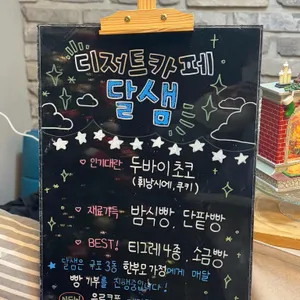 디저트카페
달샘
♥ 인기대란 두바이초코
(휘낭시에, 쿠키)
♥ 재료가득 밤식빵, 단팥빵
♥ BEST! 티그레 4종, 소금빵
달샘은 구포3동 한부모가정에게 매달
빵 기부를 진행중입니다!